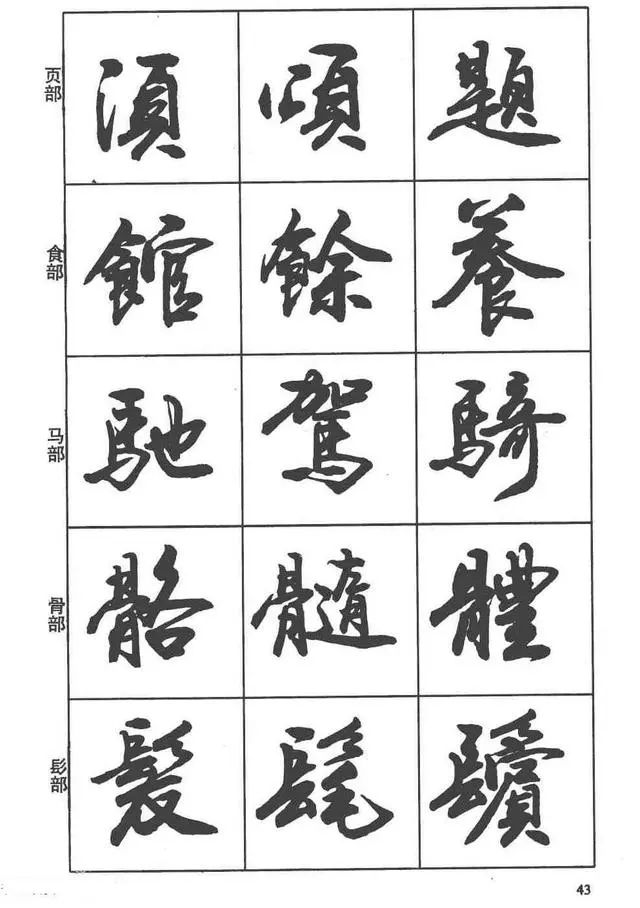 页部 須 頌 題
食部 館 餘 養
马部 馳 駕 騎
骨部 骼 髓 體
髟部 髦 鬢
43